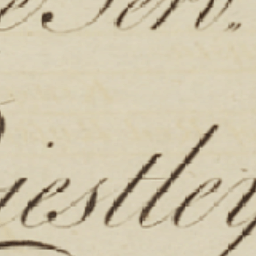 e Serv..
riestley